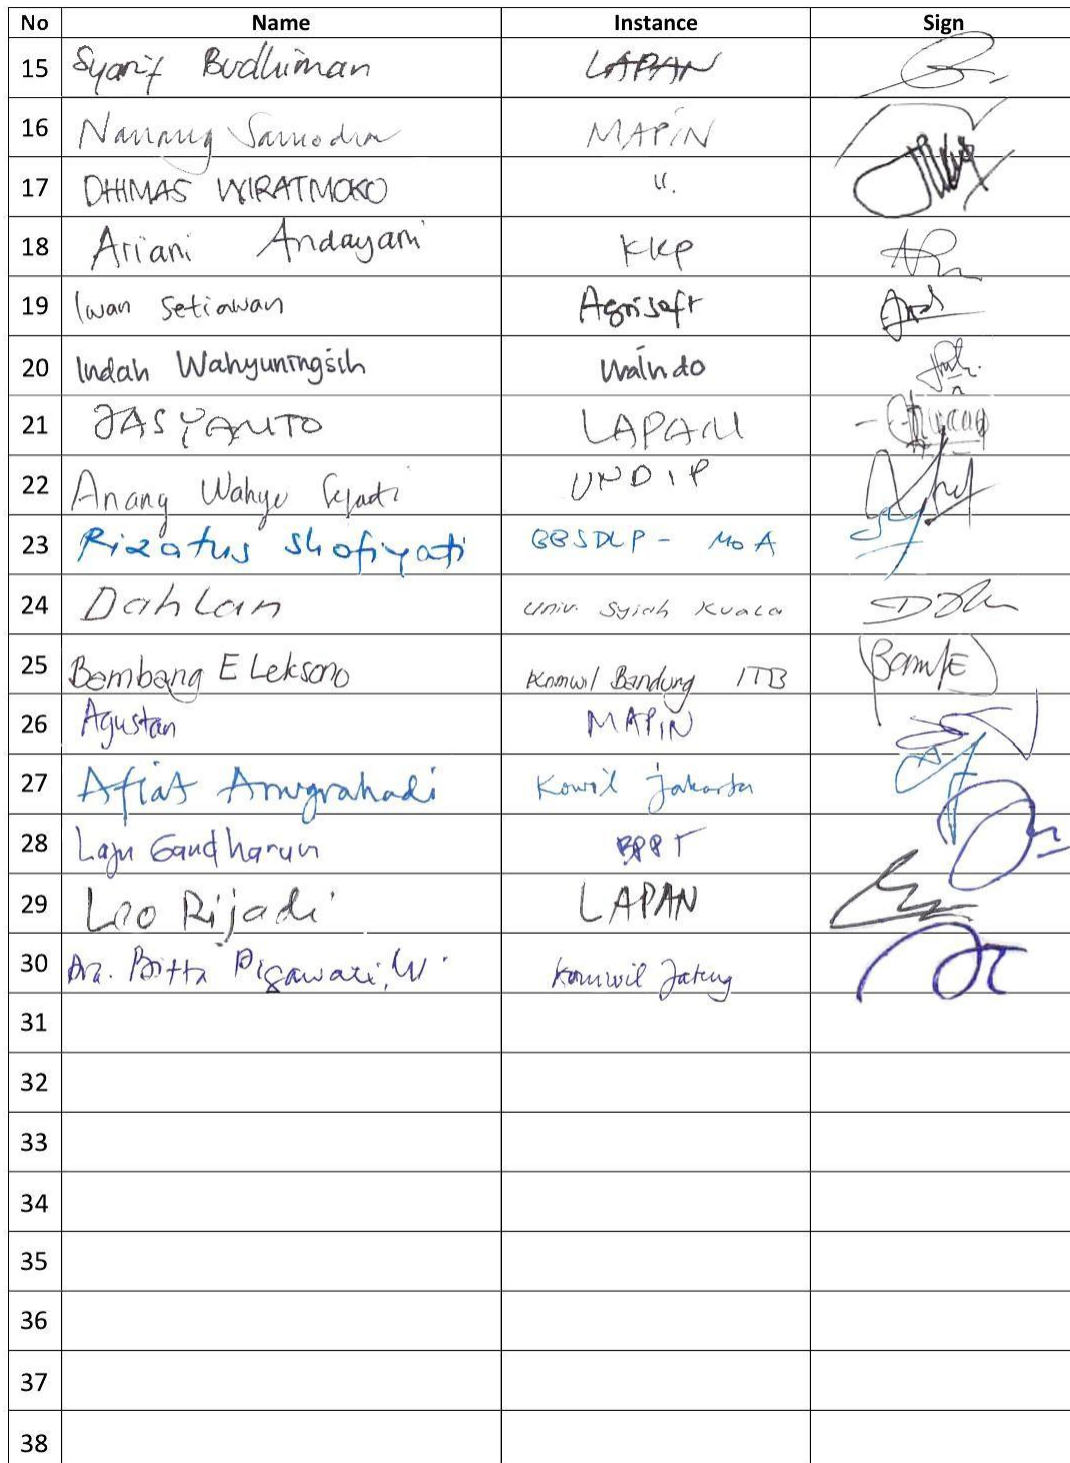 No Name Instance Sign
15 Syarif Budhiman LAPAN
16 Nanang Samodra MAPIN
17 DHIMAS WIRATMOKO "
18 Ariani Andayani KKP
19 Iwan Setiawan Agrisoft
20 Indah Wahyuningsih Waindo
21 JASYANTO LAPAN
22 Anang Wahyu Sejati UNDIP
23 Rizatus Shofiyati BBSDLP - MoA
24 Dahlan Univ. Syiah Kuala
25 Bambang E Leksono Komwil Bandung ITB
26 Agustan MAPIN
27 Afiat Anugrahadi Kowil Jakarta
28 Laju Gandharum BPPT
29 Leo Rijadi LAPAN
30 Bitta Pigawati, W Komwil Jateng
31
32
33
34
35
36
37
38